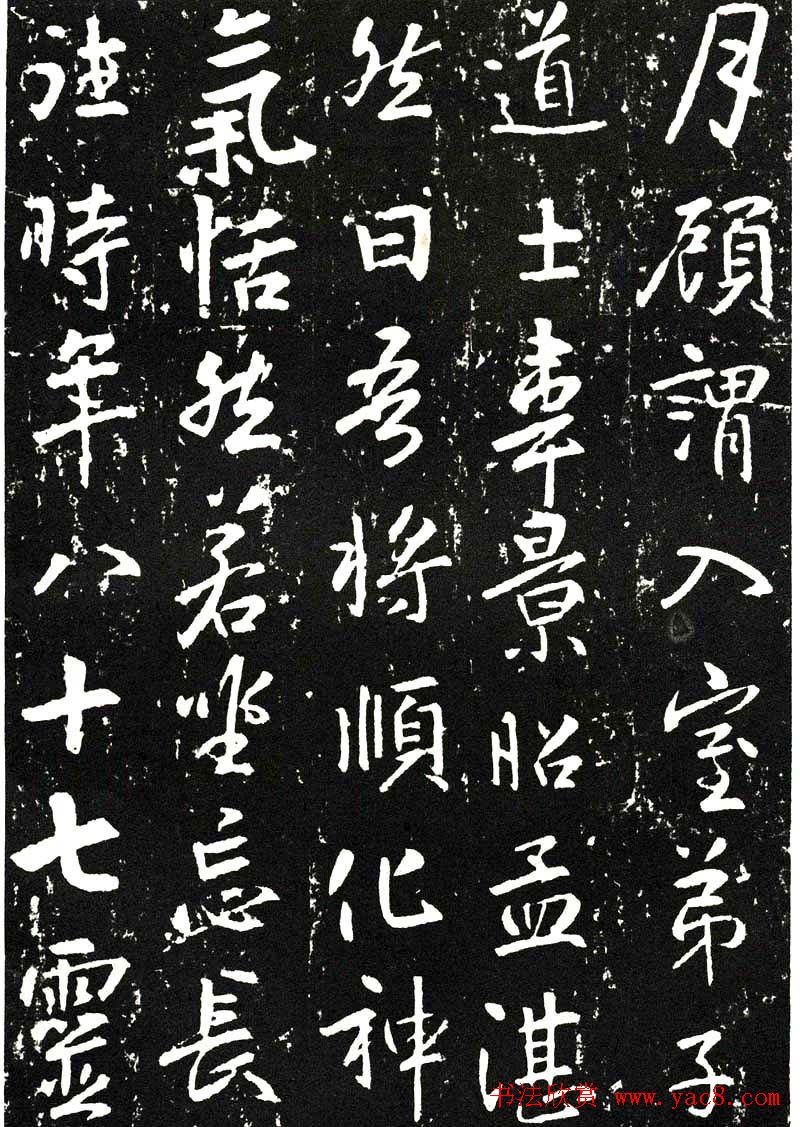 月顧謂入室弟子
道士韋景昭孟湛
然曰吾將順化神
氣恬然若坐忘長
往時年八十七靈
书法欣赏 www.yac8.com